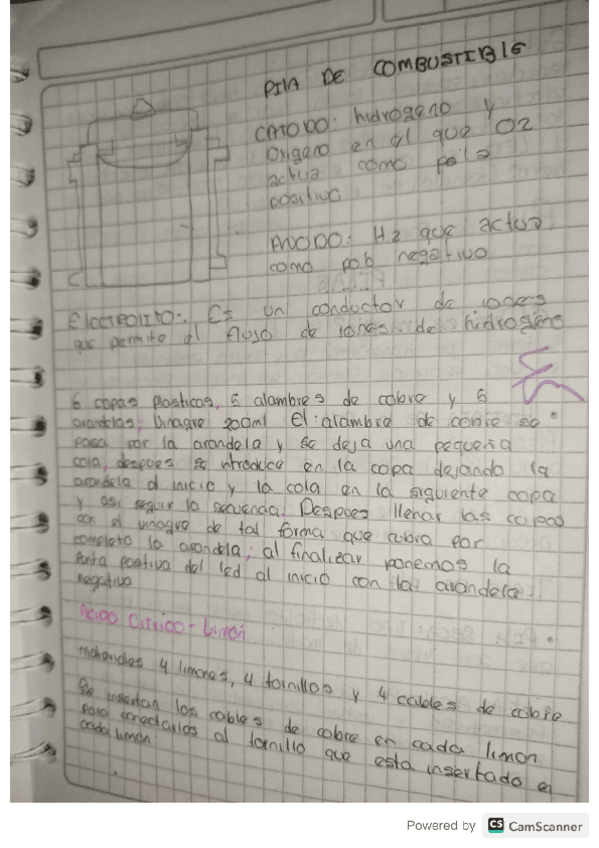 PILA DE COMBUSTIBLE
CATODO: hidrogeno y
Oxigeno en el que O2
actua como polo
positivo
ANODO: H2 que actua
como polo negativo
ELECTROLITO: Es un conductor de iones
que permite el flujo de iones de hidrogeno
6 copas plasticas, 6 alambres de cobre y 6
arandelas, Vinagre 200ml El alambre de cobre se
pasa por la arandela y se deja una pequeña
cola, despues se introduce en la copa dejando la
arandela al inicio y la cola en la siguiente copa
y asi seguir la secuencia. Despues llenar las copas
con el vinagre de tal forma que cubra por
completo la arandela; al finalizar ponemos la
punta positiva del led al inicio con la arandela
negativa
Acido Citrico - Limon
materiales 4 limones, 4 tornillos y 4 cables de cobre
Se insertan los cables de cobre en cada limon
para conectarlos al tornillo que esta insertado en
cada limon
Powered by CS CamScanner